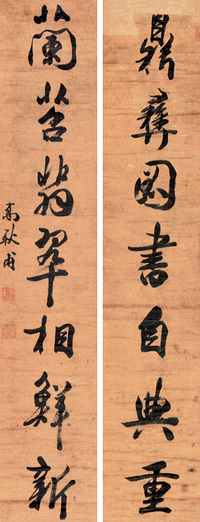 鼎彝图書自典重
蘭苕翡翠相鮮新
高秋甫